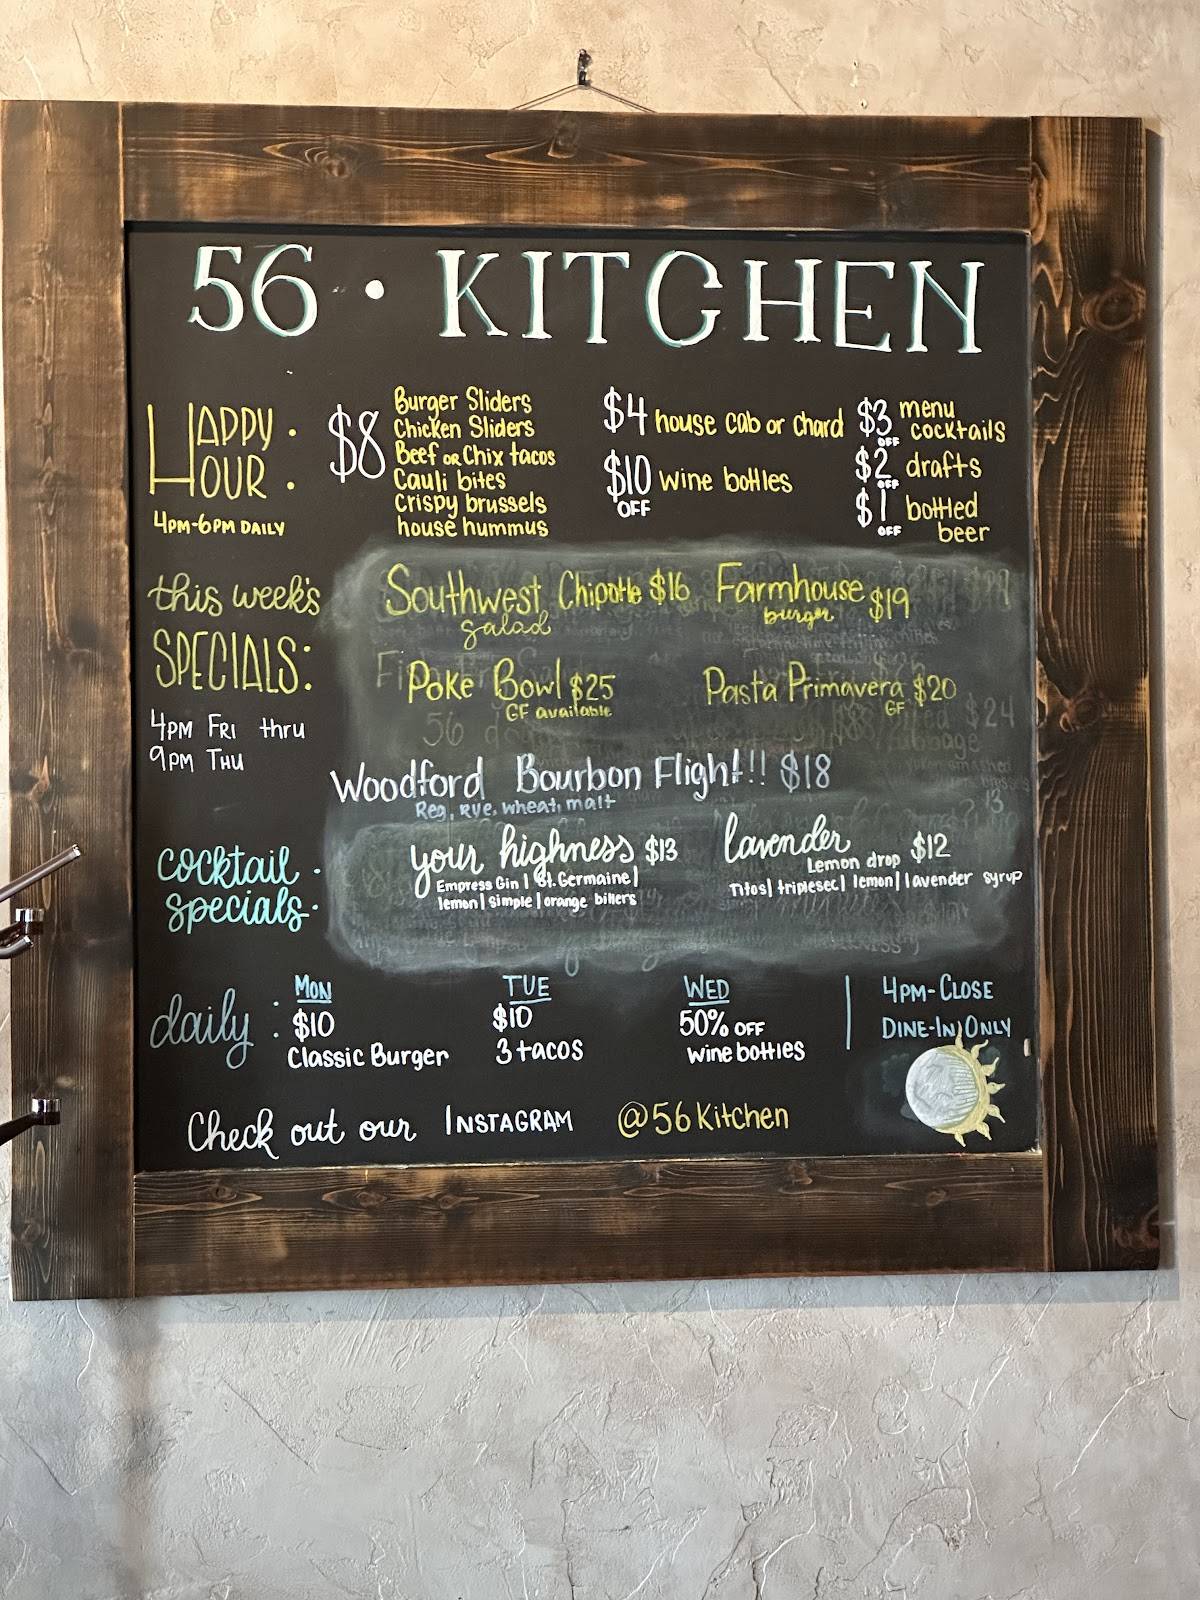 56 · KITCHEN
HAPPY HOUR :
4PM-6PM DAILY
$8
Burger Sliders
Chicken Sliders
Beef OR Chix tacos
Cauli bites
Crispy brussels
house hummus
$4 house cab or chard
$10 OFF wine bottles
$3 OFF menu cocktails
$2 OFF drafts
$1 OFF bottled beer
this week's
SPECIALS:
4PM FRI thru
9PM THU
Southwest Chipotle $16
salad
Farmhouse $19
burger
Poke Bowl $25
GF available
Pasta Primavera $20
GF
Woodford Bourbon Flight!! $18
Reg, Rye, wheat, malt
cocktail ·
specials·
your highness $13
Empress Gin | St. Germaine |
lemon | simple | orange bitters
lavender $12
Lemon drop
Titos | triplesec | lemon | lavender syrup
daily :
MON
$10
Classic Burger
TUE
$10
3 tacos
WED
50% OFF
wine bottles
4PM-CLOSE
DINE-IN ONLY
Check out our INSTAGRAM @56Kitchen